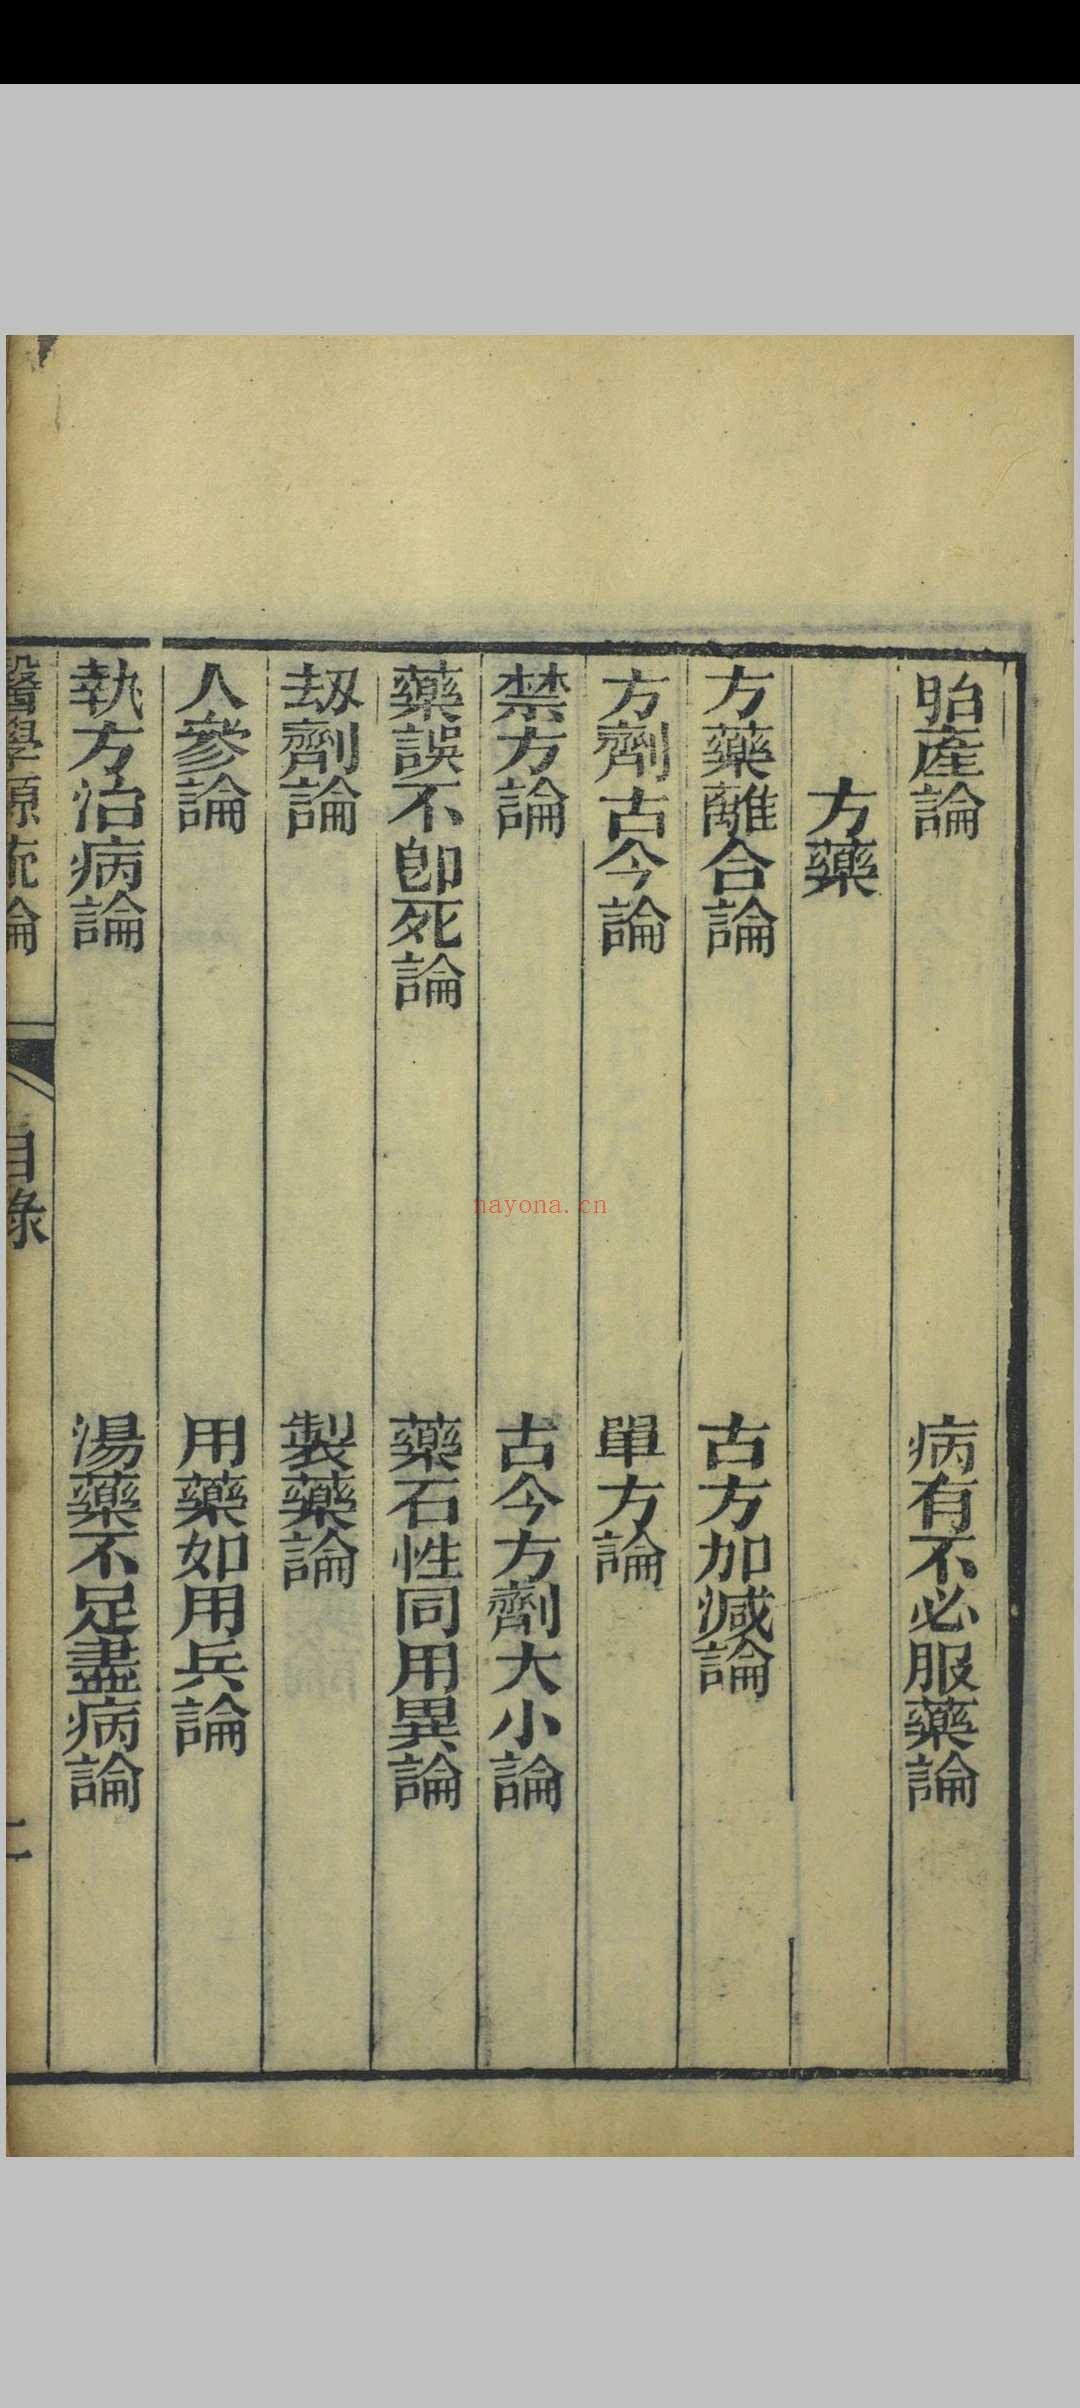 胎產論　病有不必服藥論
方藥
方藥離合論　古方加減論
方劑古今論　單方論
禁方論　古今方劑大小論
藥誤不卽死論　藥石性同用異論
刼劑論　製藥論
人參論　用藥如用兵論
執方治病論　湯藥不足盡病論
醫學源流論　目錄
nayona.cn